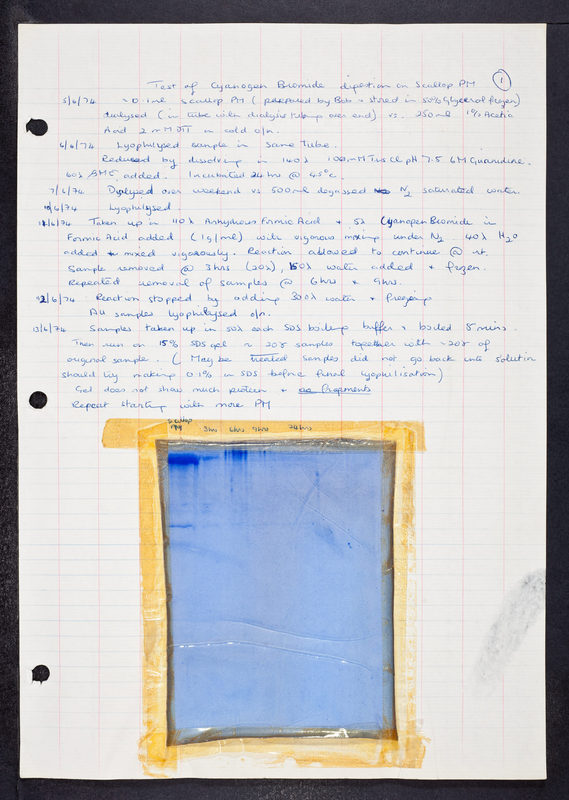 Test of Cyanogen Bromide digestion on Scallop PM 1
5/6/74 ~0.1ml Scallop PM (prepared by Bob + stored in 50% Glycerol frozen)
dialysed (in tube with dialysis tubing over end) vs. 250ml 1% Acetic
Acid 2mM DTT in cold o/n.
6/6/74 Lyophilysed sample in same tube.
Reduced by dissolving in 140λ 100mM Tris Cl pH 7.5 6M Guanidine.
60λ BME added. Incubated 24hrs @ 45°C.
7/6/74 Dialysed over weekend vs 500ml degassed N2 saturated water.
10/6/74 Lyophilysed
11/6/74 Taken up in 110λ Anhydrous Formic Acid + 5λ Cyanogen Bromide in
Formic Acid added (1g/ml) with vigorous mixing under N2 40λ H2O
added + mixed vigorously. Reaction allowed to continue @ rt.
Sample removed @ 3hrs (20λ), 150λ water added + frozen.
Repeated removal of samples @ 6hrs + 9hrs.
12/6/74 Reaction stopped by adding 300λ water + freezing
All samples lyophilysed o/n.
13/6/74 Samples taken up in 50λ each SDS boiling buffer + boiled 8 mins.
Then run on 15% SDS gel ~ 20γ samples together with ~20γ of
original sample. (Maybe treated samples did not go back into solution
should try making 0.1% in SDS before final lyophilisation)
Gel does not show much protein + no fragments
Repeat starting with more PM
Scallop
PM 3hrs 6hrs 9hrs 24hrs